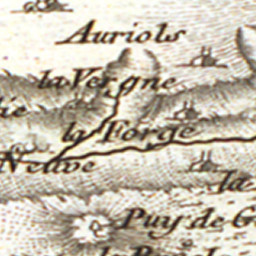 Auriols
la Vergne
la Forge
Neuve
la
Puy de G